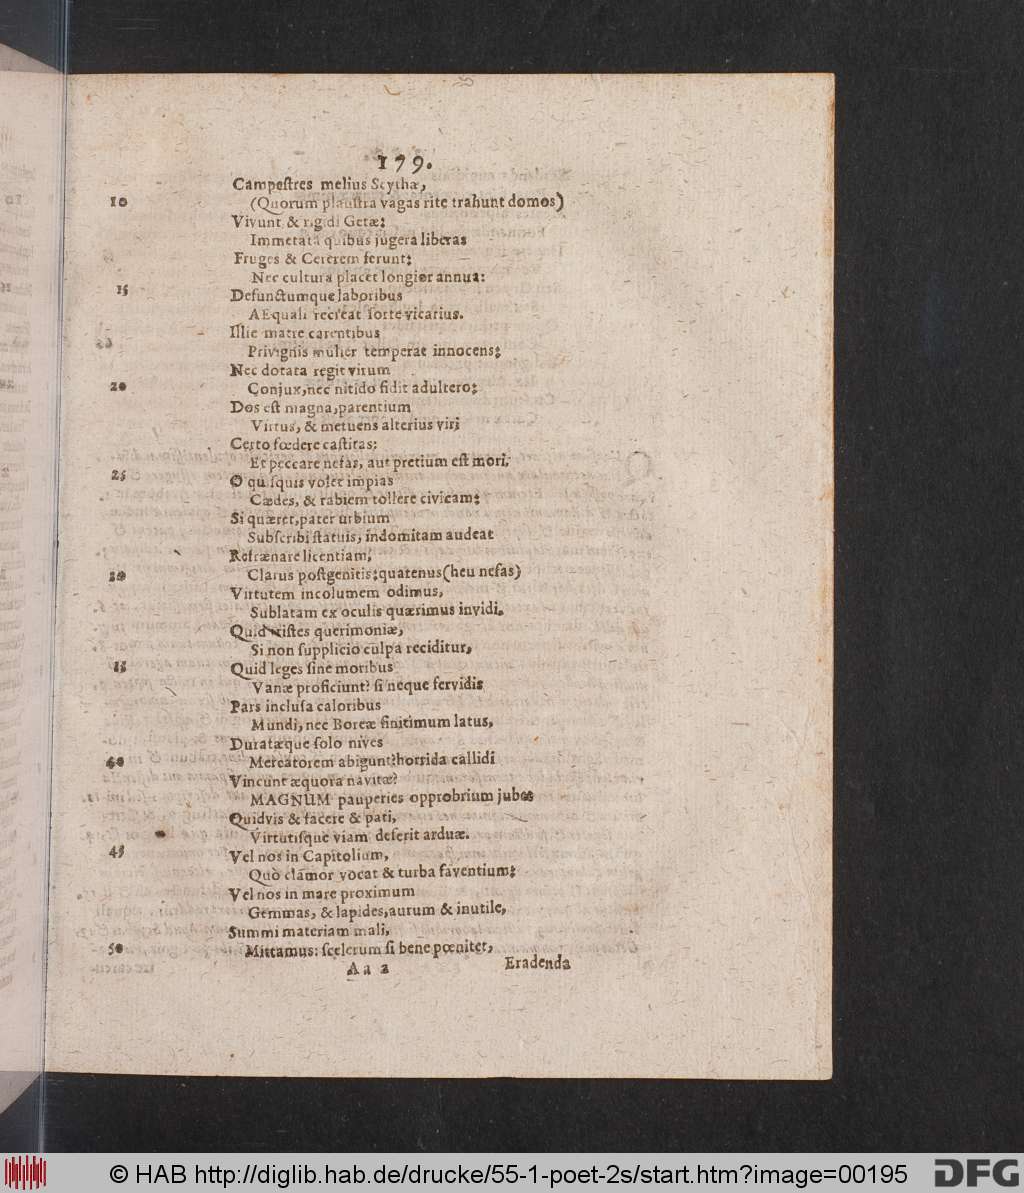 179.
Campeſtres melius Scythæ,
10 (Quorum plauſtra vagas rite trahunt domos)
Vivunt & rigidi Getæ:
Immetata quibus jugera liberas
Fruges & Cererem ferunt:
Nec cultura placet longior annua:
15 Defunctumque laboribus
AEquali recreat ſorte vicarius.
Illic matre carentibus
Privignis mulier temperat innocens:
Nec dotata regit virum
20 Conjux, nec nitido fidit adultero:
Dos eſt magna, parentium
Virtus, & metuens alterius viri
Certo fœdere caſtitas:
Et peccare nefas, aut pretium eſt mori.
25 O quiſquis volet impias
Cædes, & rabiem tollere civicam:
Si quæret, pater urbium
Subſcribi ſtatuis, indomitam audeat
Refrænare licentiam,
30 Clarus poſtgenitis: quatenus (heu nefas)
Virtutem incolumem odimus,
Sublatam ex oculis quærimus invidi.
Quid triſtes querimoniæ,
Si non ſupplicio culpa reciditur,
35 Quid leges ſine moribus
Vanæ proficiunt? ſi neque fervidis
Pars incluſa caloribus
Mundi, nec Boreæ finitimum latus,
Duratæque ſolo nives
40 Mercatorem abigunt? horrida callidi
Vincunt æquora navitæ?
MAGNUM pauperies opprobrium jubet
Quidvis & facere & pati,
Virtutiſque viam deſerit arduæ.
45 Vel nos in Capitolium,
Quò clamor vocat & turba faventium:
Vel nos in mare proximum
Gemmas, & lapides, aurum & inutile,
Summi materiam mali,
50 Mittamus: ſcelerum ſi bene pœnitet,
Aa 2 Eradenda
© HAB http://diglib.hab.de/drucke/55-1-poet-2s/start.htm?image=00195 DFG